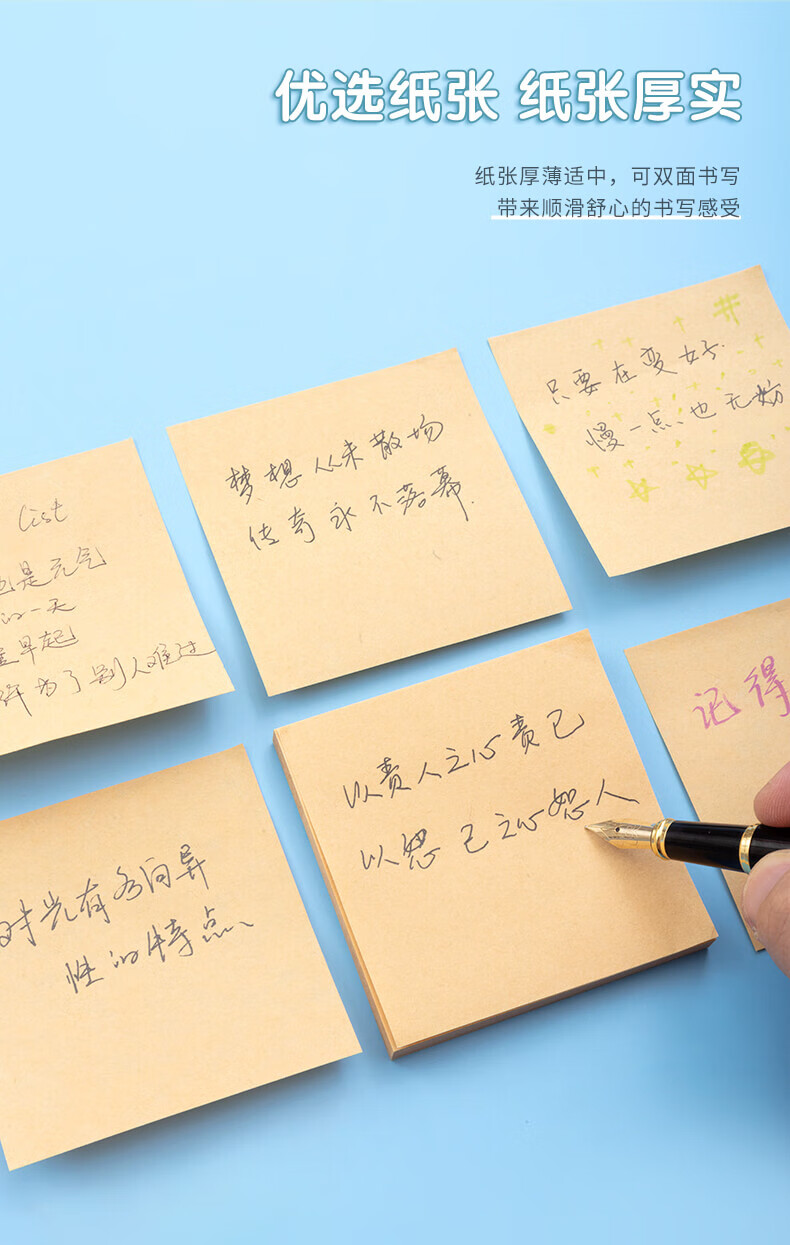 优选纸张 纸张厚实
纸张厚薄适中，可双面书写
带来顺滑舒心的书写感受
只要在变好
慢一点也无妨
梦想从未散场
传奇永不落幕.
List
也是元气
的一天
早起
为了别人难过
记得
以责人之心责己
以恕己之心恕人
时光有各向异
性的特点、